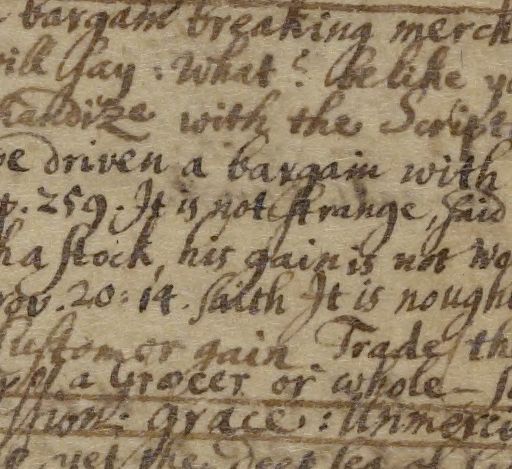 bargain breaking merch
will say: What? belike yo
handize with the Script
ve driven a bargain with
p. 259. It is not strange, said
h a stock, his gain is not wo
rov. 20: 14. saith It is nought
Customer gain Trade th
a Grocer or whole-s
Grace: Unmerci
yet the